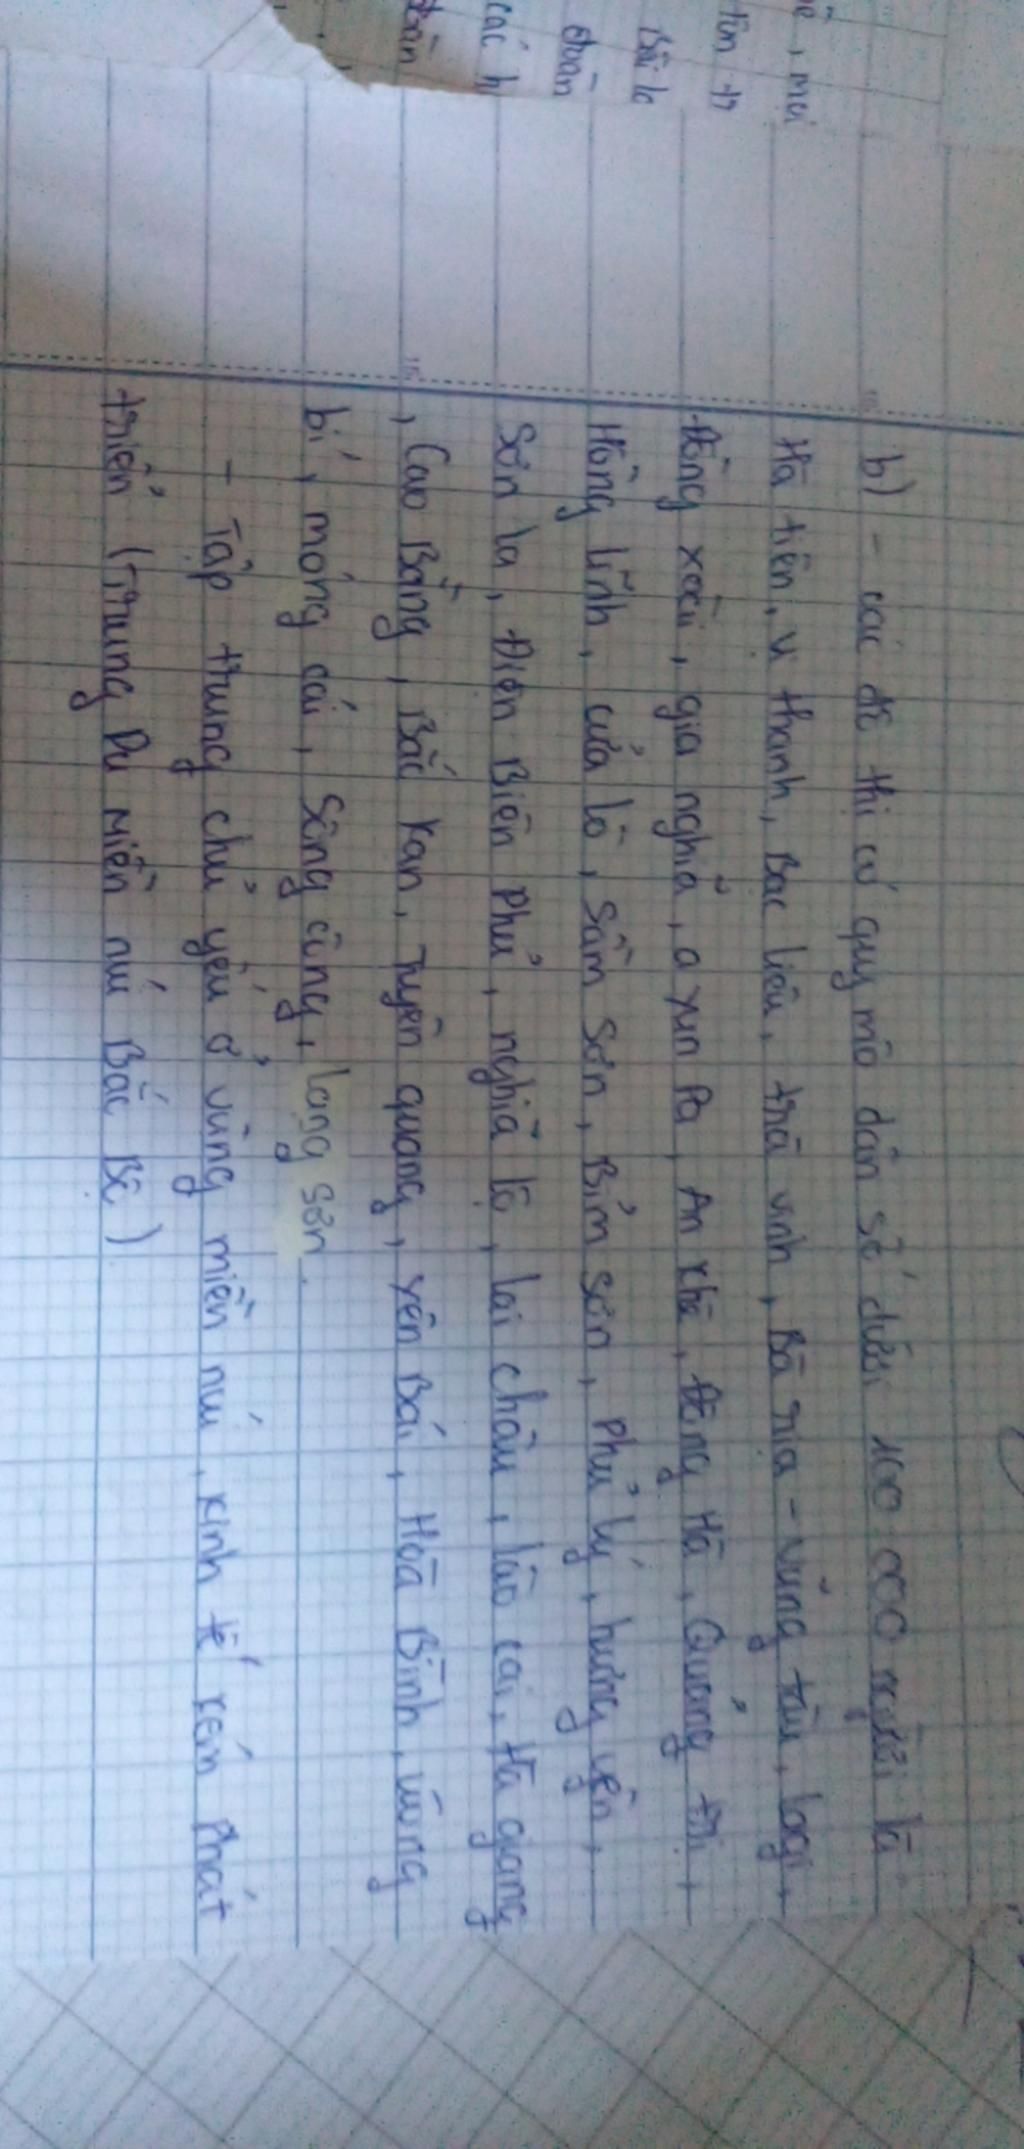 b) - các đô thị có quy mô dân số dưới 100 000 người là
Hà tiên, vị thanh, Bạc liêu, trà vinh, Bà rịa - vũng tàu, lagi,
Đồng xoài, gia nghĩa, a yun Pa, An Khê, Đông Hà, Quảng trị,
Hồng lĩnh, cửa lò, Sầm Sơn, Bỉm sơn, Phủ lý, hưng yên,
Sơn la, Điện Biên Phủ, nghĩa lộ, lai châu, lào cai, Hà giang
, Cao Bằng, Bắc Kạn, Tuyên quang, Yên Bái, Hoà Bình, uông
bí, móng cái, Sông công, lạng sơn.
- Tập trung chủ yếu ở vùng miền núi, kinh tế kém phát
triển (Trung Du Miền núi Bắc Bộ)
mại
tồn tr
Bãi lo
đoàn
các h